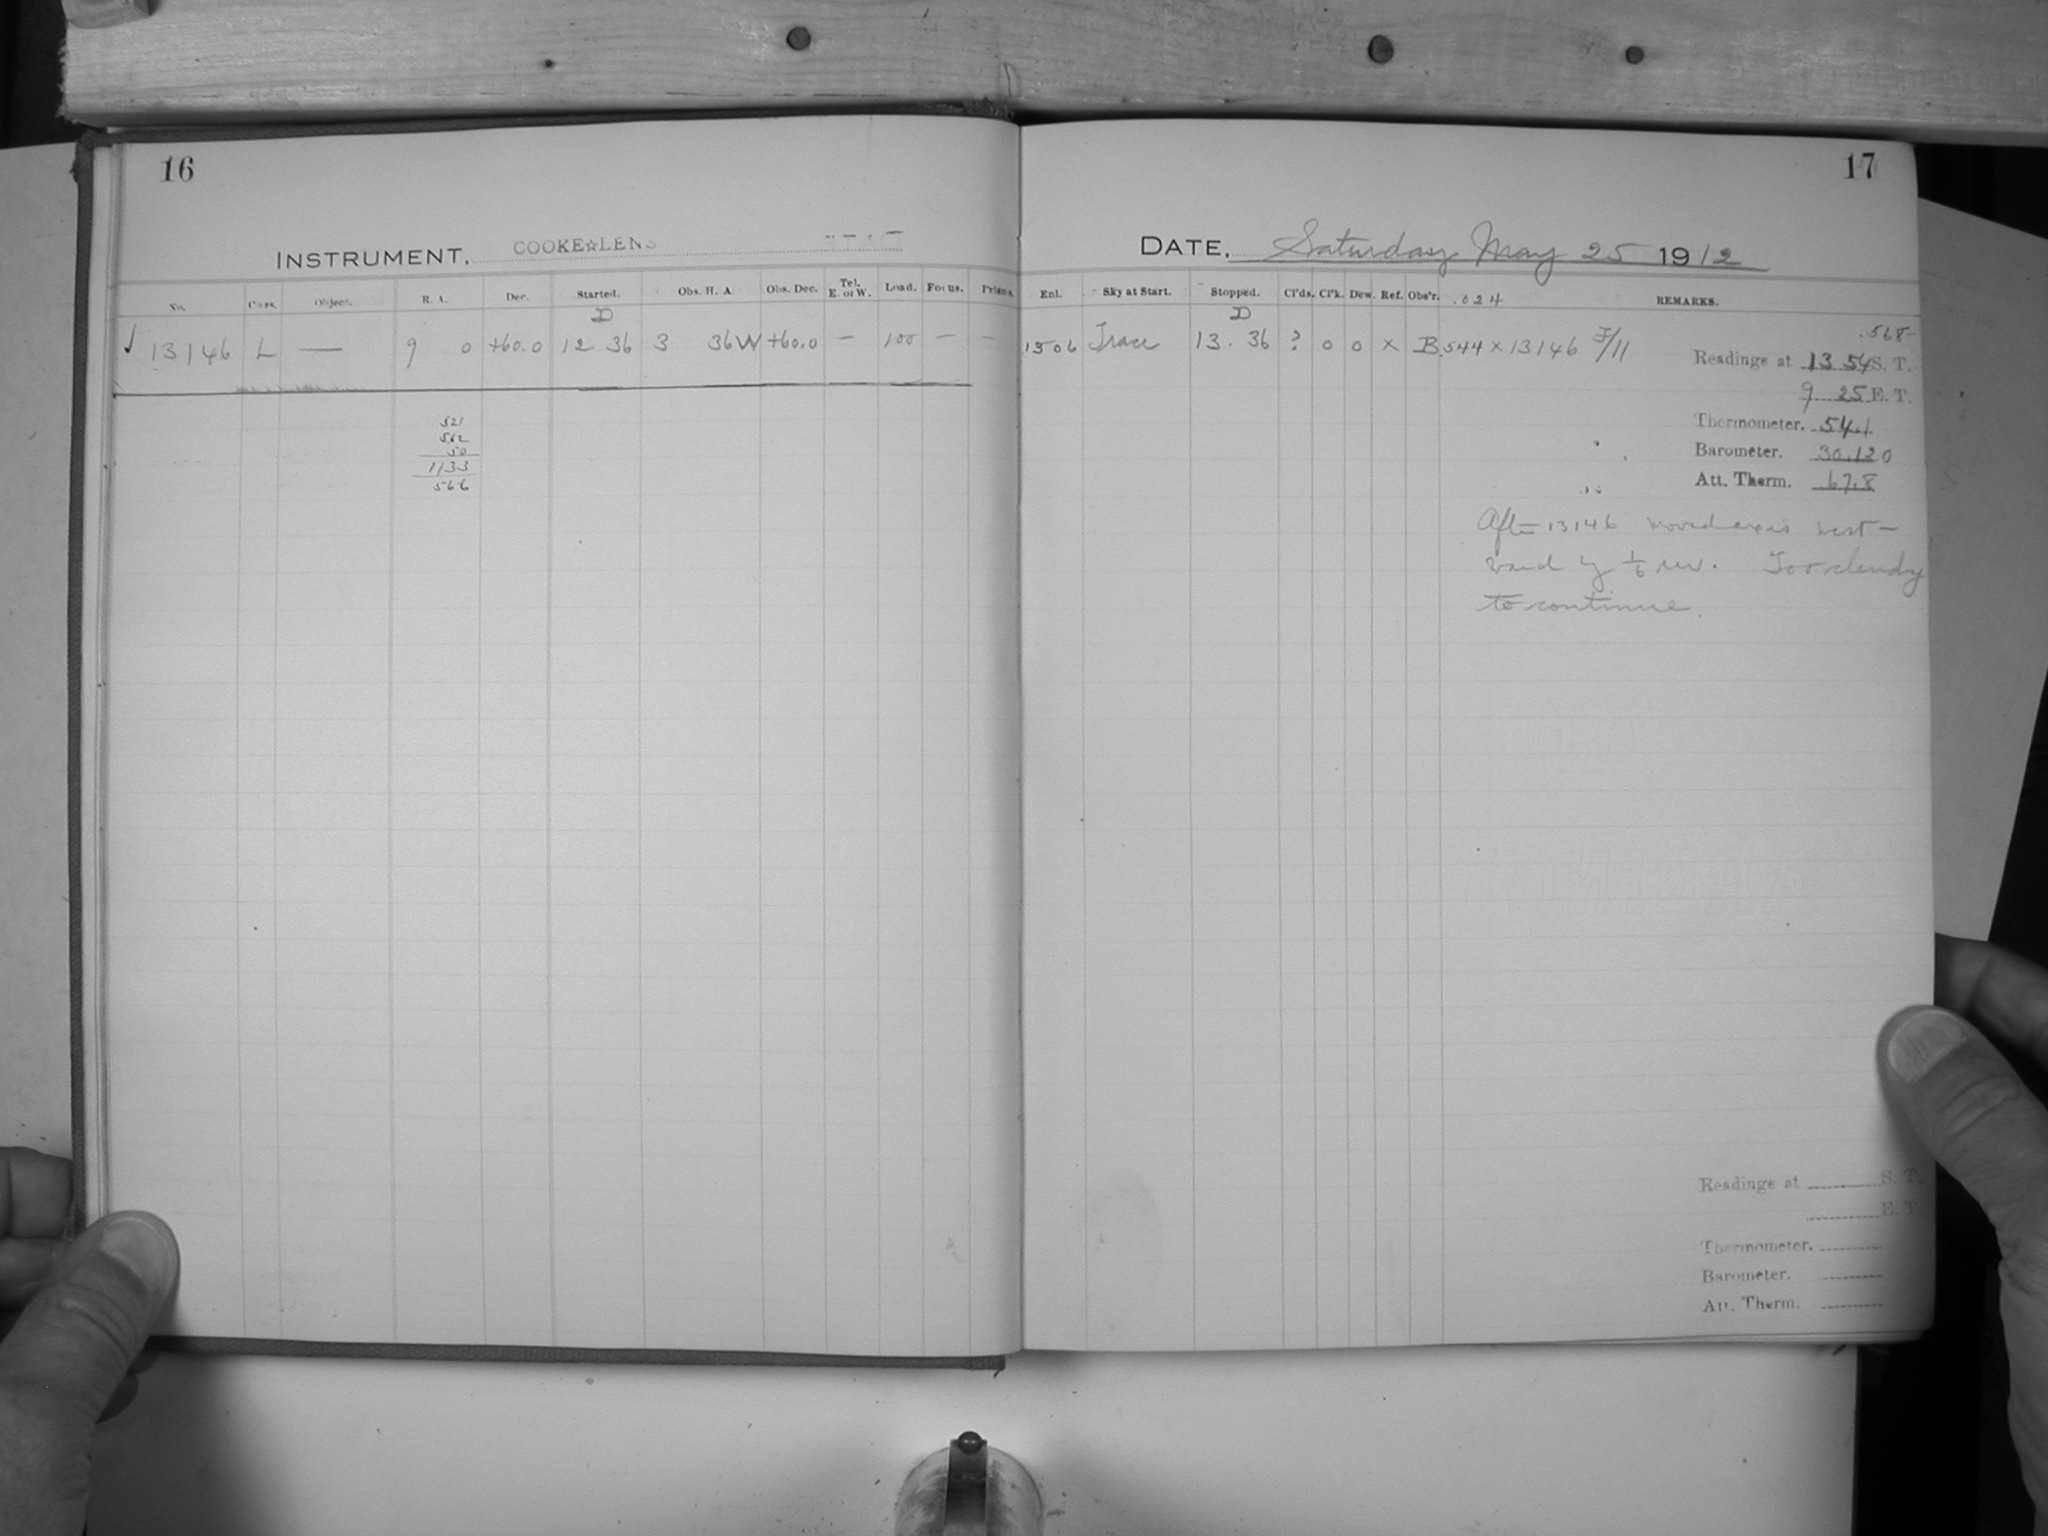 16
INSTRUMENT, COOKE☆LENS
No. Class. Object. R. A. Dec. Started. Obs. H. A. Obs. Dec. Tel. E. or W. Load. Focus. Prisms.
D
✓ 13146 L — 9 0 +60.0 12 36 3 36W +60.0 — 100 — —
321
562
50
1133
566
17
DATE, Saturday May 25 1912
Enl. Sky at Start. Stopped. Cl'ds. Cl'k. Dew. Ref. Obs'r. .024 REMARKS.
D
1306 Trace 13. 36 ? 0 0 × B .544 × 13146 I/11
.568
Readings at 13 54 S. T.
9 25 E. T.
Thermometer. 54.1
Barometer. 30.120
Att. Therm. 67.8
After 13146 moved axis west-
ward by 1/6 rev. Too cloudy
to continue.
Readings at S. T.
E. T.
Thermometer.
Barometer.
Att. Therm.